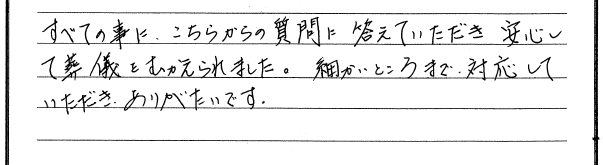 すべての事に、こちらからの質問に答えていただき安心し
て葬儀をむかえられました。細かいところまで対応して
いただき、ありがたいです。